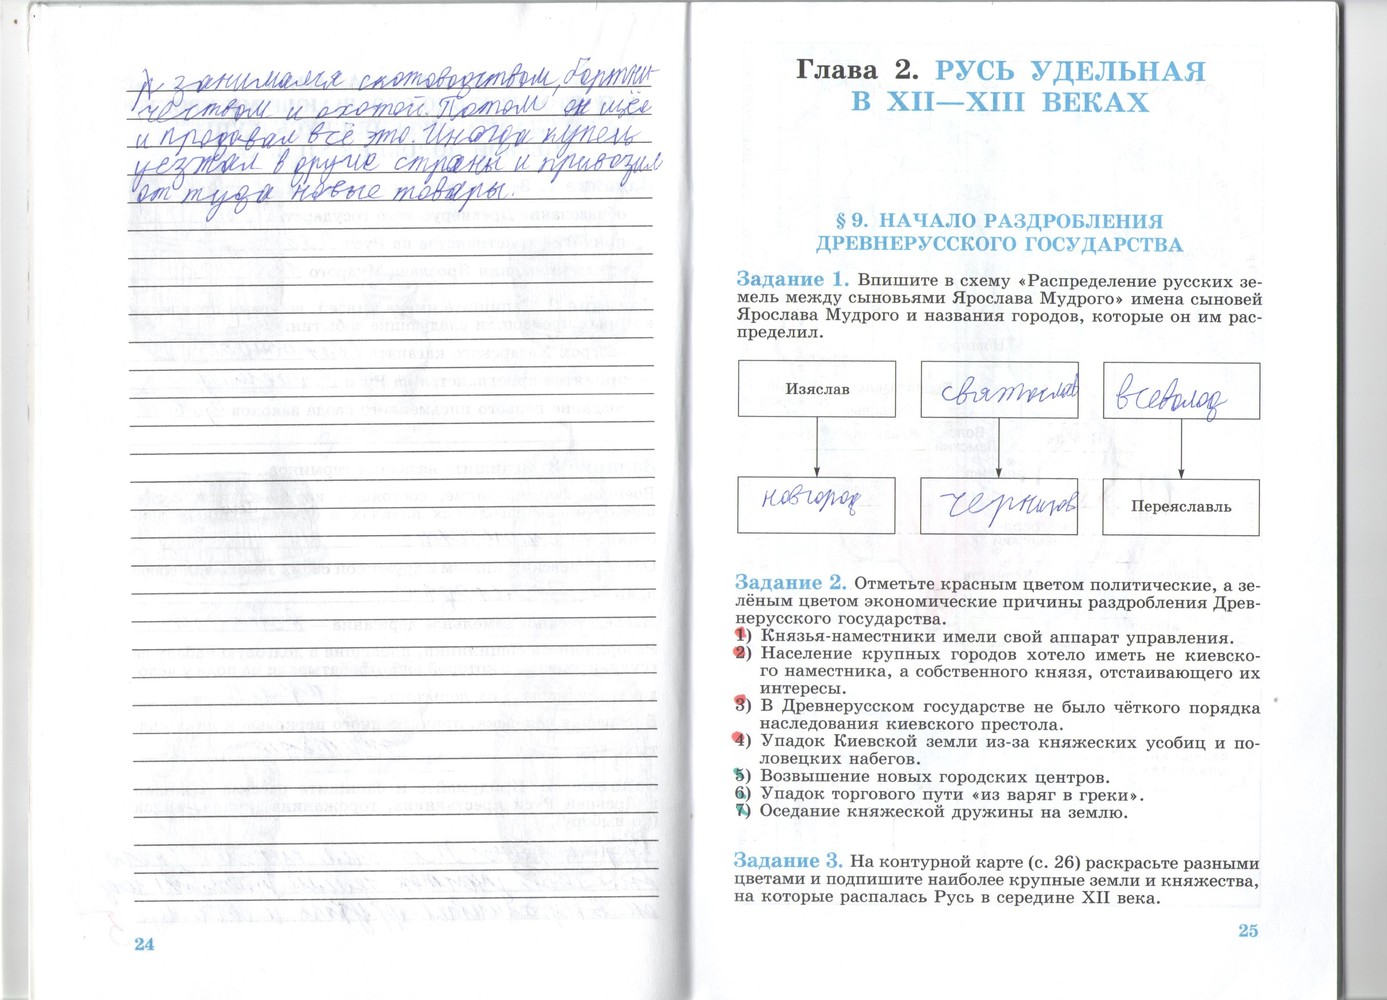 занимался скотоводством, бортни-
чеством и охотой. Потом он ищё
и продавал всё это. Иногда купец
уезжал в другие страны и привозил
от туда новые товары.
24
Глава 2. РУСЬ УДЕЛЬНАЯ
В XII—XIII ВЕКАХ
§ 9. НАЧАЛО РАЗДРОБЛЕНИЯ
ДРЕВНЕРУССКОГО ГОСУДАРСТВА
Задание 1. Впишите в схему «Распределение русских зе-
мель между сыновьями Ярослава Мудрого» имена сыновей
Ярослава Мудрого и названия городов, которые он им рас-
пределил.
Изяслав святослав всеволод
новгород чернигов Переяславль
Задание 2. Отметьте красным цветом политические, а зе-
лёным цветом экономические причины раздробления Древ-
нерусского государства.
1) Князья-наместники имели свой аппарат управления.
2) Население крупных городов хотело иметь не киевско-
го наместника, а собственного князя, отстаивающего их
интересы.
3) В Древнерусском государстве не было чёткого порядка
наследования киевского престола.
4) Упадок Киевской земли из-за княжеских усобиц и по-
ловецких набегов.
5) Возвышение новых городских центров.
6) Упадок торгового пути «из варяг в греки».
7) Оседание княжеской дружины на землю.
Задание 3. На контурной карте (с. 26) раскрасьте разными
цветами и подпишите наиболее крупные земли и княжества,
на которые распалась Русь в середине XII века.
25